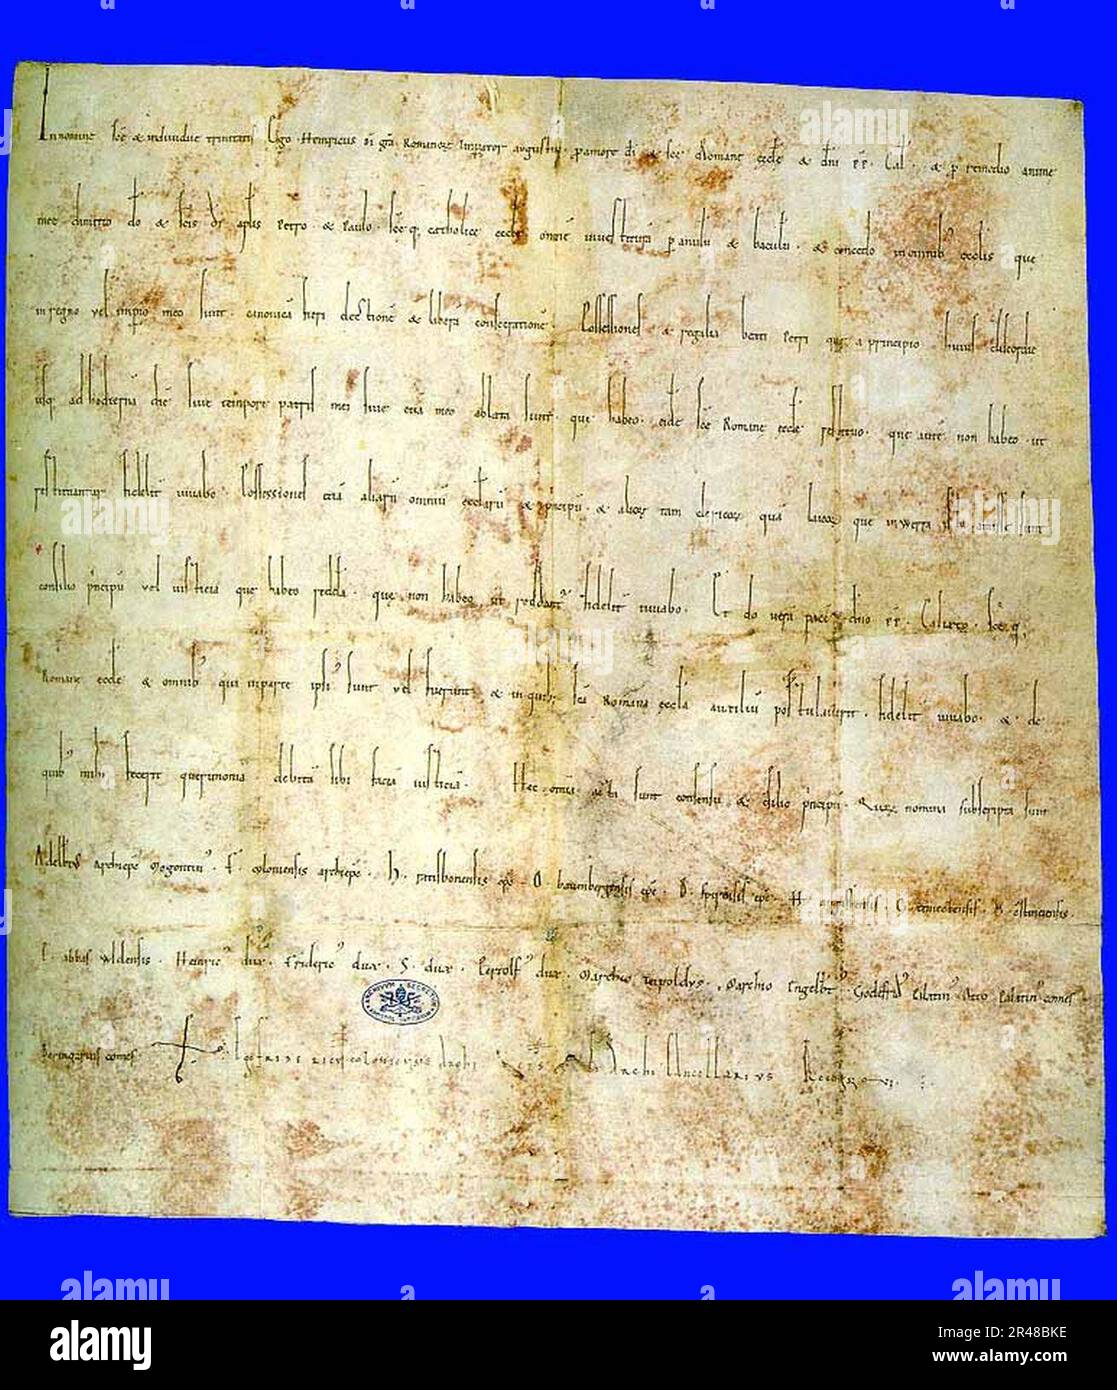 In nomine sce & individue trinitatis Ego Heinricus di gra Romanorꝫ Imperator augustus p amore di & sce Romane eccle & dni pp. Cal. & p remedio anime
mee dimitto do & scis di aplis Petro & Paulo sceq catholice eccle omne investitura p anulu & baculu & concedo in omnib ecclis que
in regno vel imperio meo sunt canonica fieri electione & libera consecratione. Possessiones & regalia beati Petri que a principio huius discordie
usq ad hodierna die sive tempore patris mei sive etia meo ablata sunt que habeo eide sce Romane eccle restituo que aute non habeo ut
restituantur fidelit iuvabo. Possessiones etia aliaru omniu ecclaru & principu & alioꝝ tam clericoꝝ qua laicoꝝ que in werra ista amisse sunt
consilio principu vel iusticia que habeo redda. que non habeo ut reddant fidelit iuvabo. Et do vera pace dno pp. Calixto sceq
Romane eccle & omnib qui in parte ipsius sunt vel fuerunt & in quib sca Romana eccla auxiliu postulaverit fidelit iuvabo & de
quib mihi fecerit querimonia debita sibi facia iusticia. Hec omia acta sunt consensu & csilio principu. Quoꝝ nomina subscripta sunt
Adelbtus archiepc Mogontin. F. coloniensis archiepc. H. ratisbonensis epc. O. bauenbergensis epc. B. spirensis epc. H. augustensis. G. traiectensis. O. constanciensis.
E. abbas uuldensis. Heinric dux. Frideric dux. S. dux. Pertolf dux. Marchio teipoldus. Marchio Engelbt. Godefrid Palatin. Otto Palatin comes
Beringarius comes + Fridericus coloniensis archi eps & Archicancellarius Recognovi.
ARCHIVVM SECRETVM
alamy
Image ID: 2R48BKE
www.alamy.com